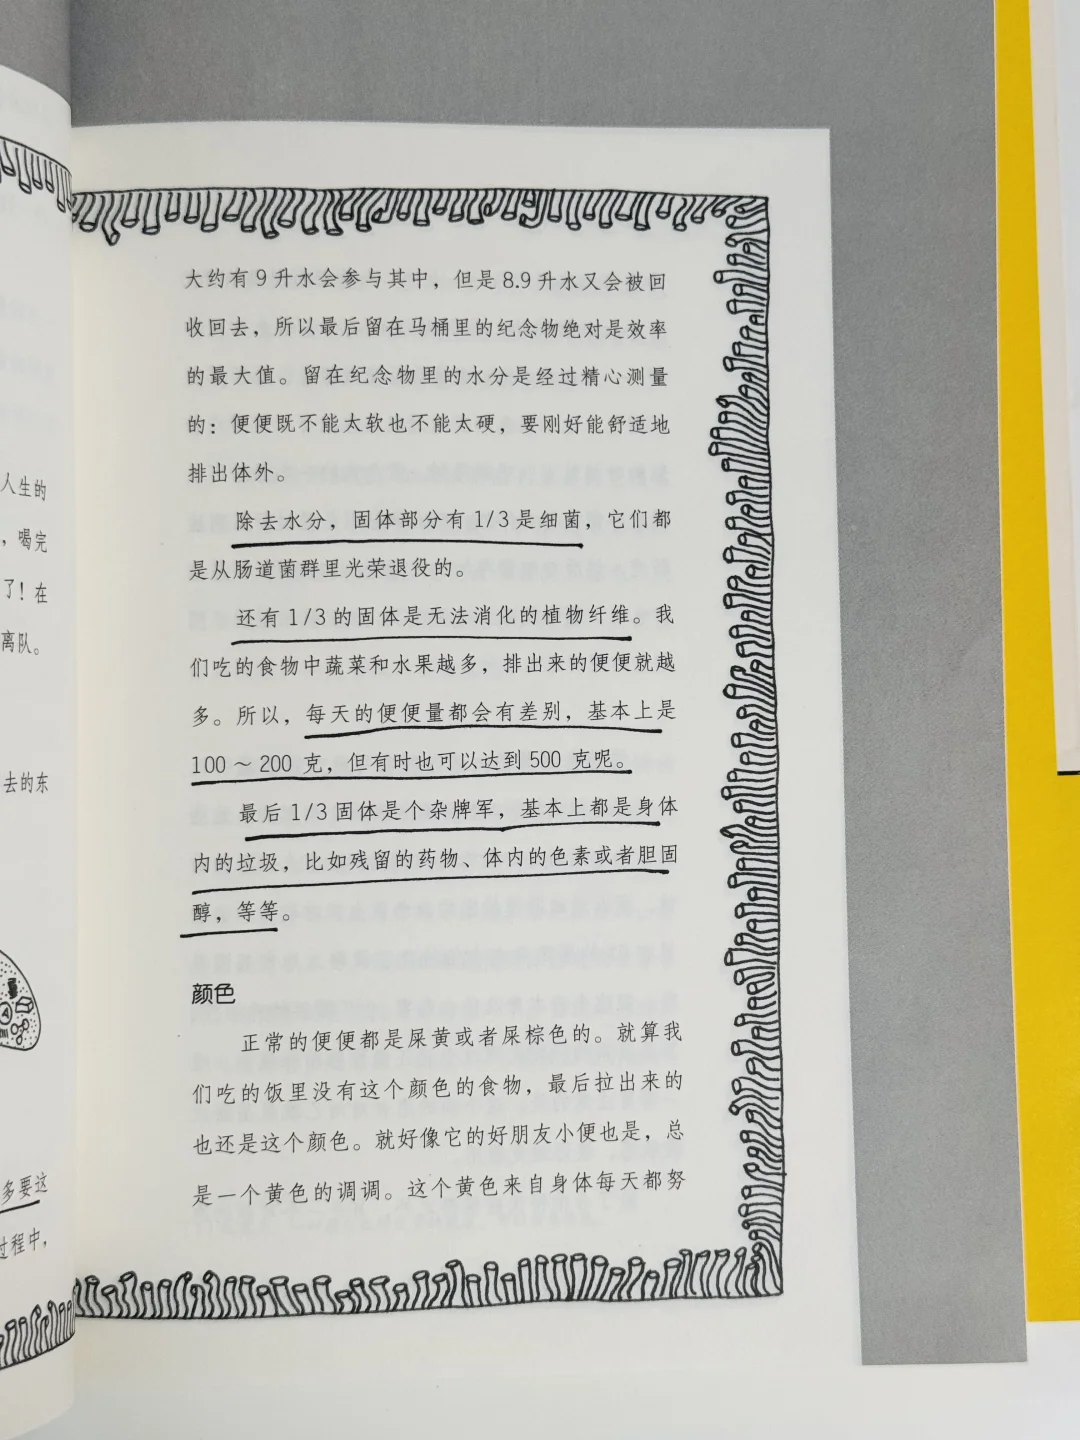 人生的
，喝完
了！在
离队。
去的东
多要这
过程中，
大约有 9 升水会参与其中，但是 8.9 升水又会被回
收回去，所以最后留在马桶里的纪念物绝对是效率
的最大值。留在纪念物里的水分是经过精心测量
的：便便既不能太软也不能太硬，要刚好能舒适地
排出体外。
除去水分，固体部分有 1/3 是细菌，它们都
是从肠道菌群里光荣退役的。
还有 1/3 的固体是无法消化的植物纤维。我
们吃的食物中蔬菜和水果越多，排出来的便便就越
多。所以，每天的便便量都会有差别，基本上是
100 ~ 200 克，但有时也可以达到 500 克呢。
最后 1/3 固体是个杂牌军，基本上都是身体
内的垃圾，比如残留的药物、体内的色素或者胆固
醇，等等。
颜色
正常的便便都是屎黄或者屎棕色的。就算我
们吃的饭里没有这个颜色的食物，最后拉出来的
也还是这个颜色。就好像它的好朋友小便也是，总
是一个黄色的调调。这个黄色来自身体每天都努